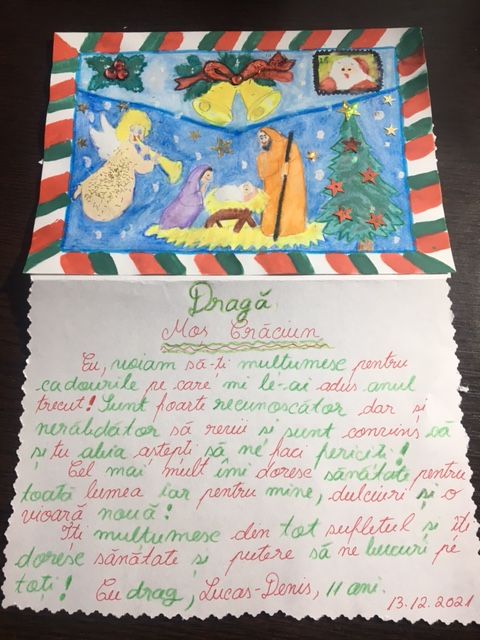 Dragă
Moș Crăciun
Eu, voiam să-ți mulțumesc pentru
cadourile pe care mi le-ai adus anul
trecut! Sunt foarte recunoscător dar și
nerăbdător să revii și sunt convins că
și tu abia aștepți să ne faci fericiți!
Cel mai mult îmi doresc sănătate pentru
toată lumea iar pentru mine, dulciuri și o
vioară nouă!
Îți mulțumesc din tot sufletul și îți
doresc sănătate și putere să ne bucuri pe
toți!
Cu drag, Lucas-Denis, 11 ani.
13.12.2021